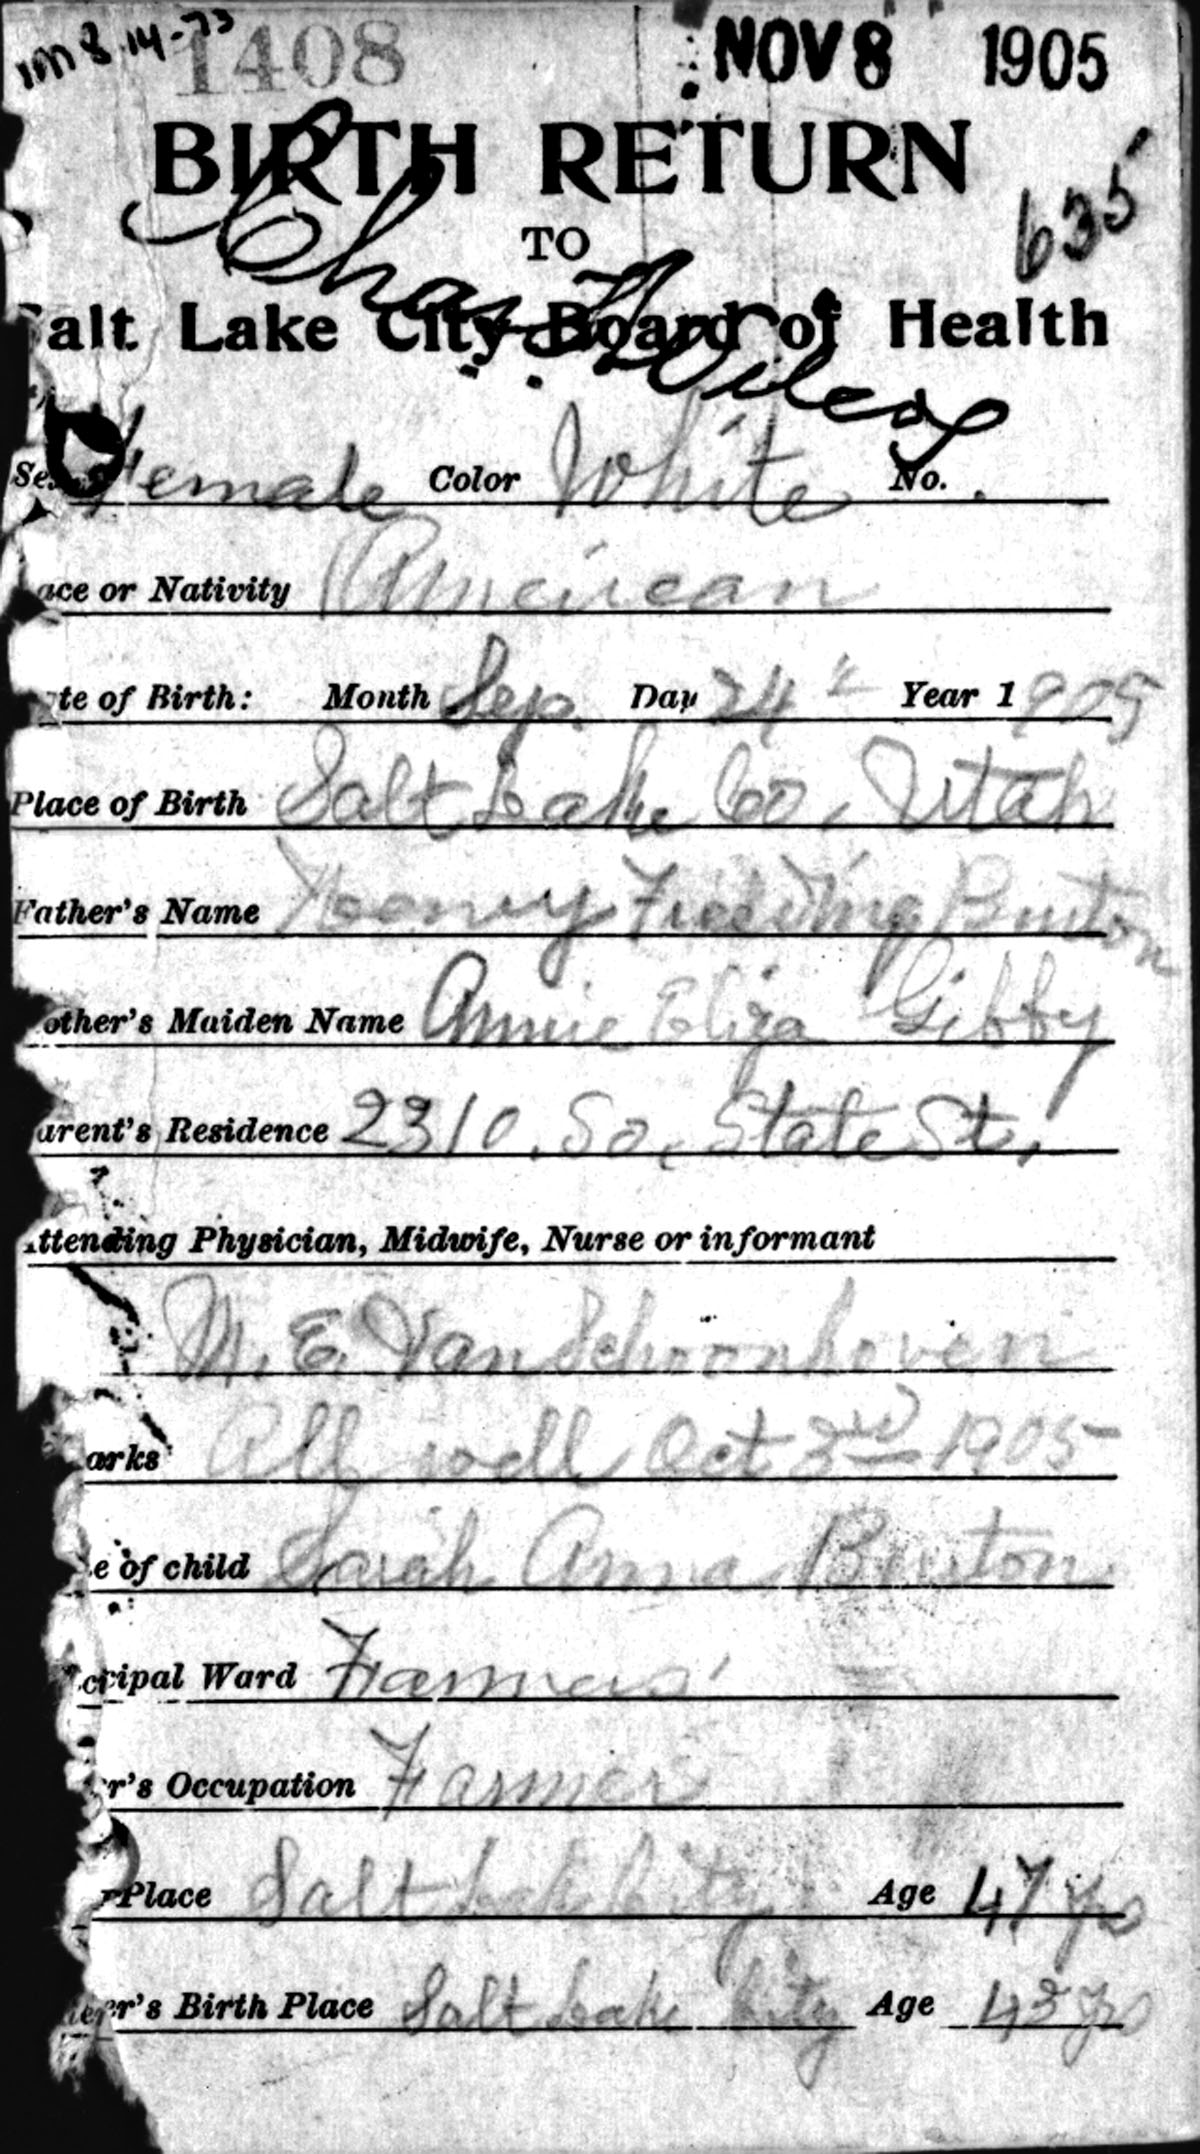 1M 8-14-73 1408 NOV 8 1905
BIRTH RETURN
635
TO
Chas. F. Wilcox
alt Lake City Board of Health
Se Female Color White No.
ace or Nativity American
te of Birth: Month Sep. Day 24th Year 1905
Place of Birth Salt Lake Co, Utah
Father's Name Henry Fielding Burton
other's Maiden Name Annie Eliza Gibby
arent's Residence 2310. So. State St.
ttending Physician, Midwife, Nurse or informant
M. E. Van Schoonhoven
arks All well Oct 2nd 1905-
e of child Sarah Anna Burton
cipal Ward Farmers'
r's Occupation Farmer
Place Salt Lake City Age 47 yrs
er's Birth Place Salt Lake City Age 43 yrs